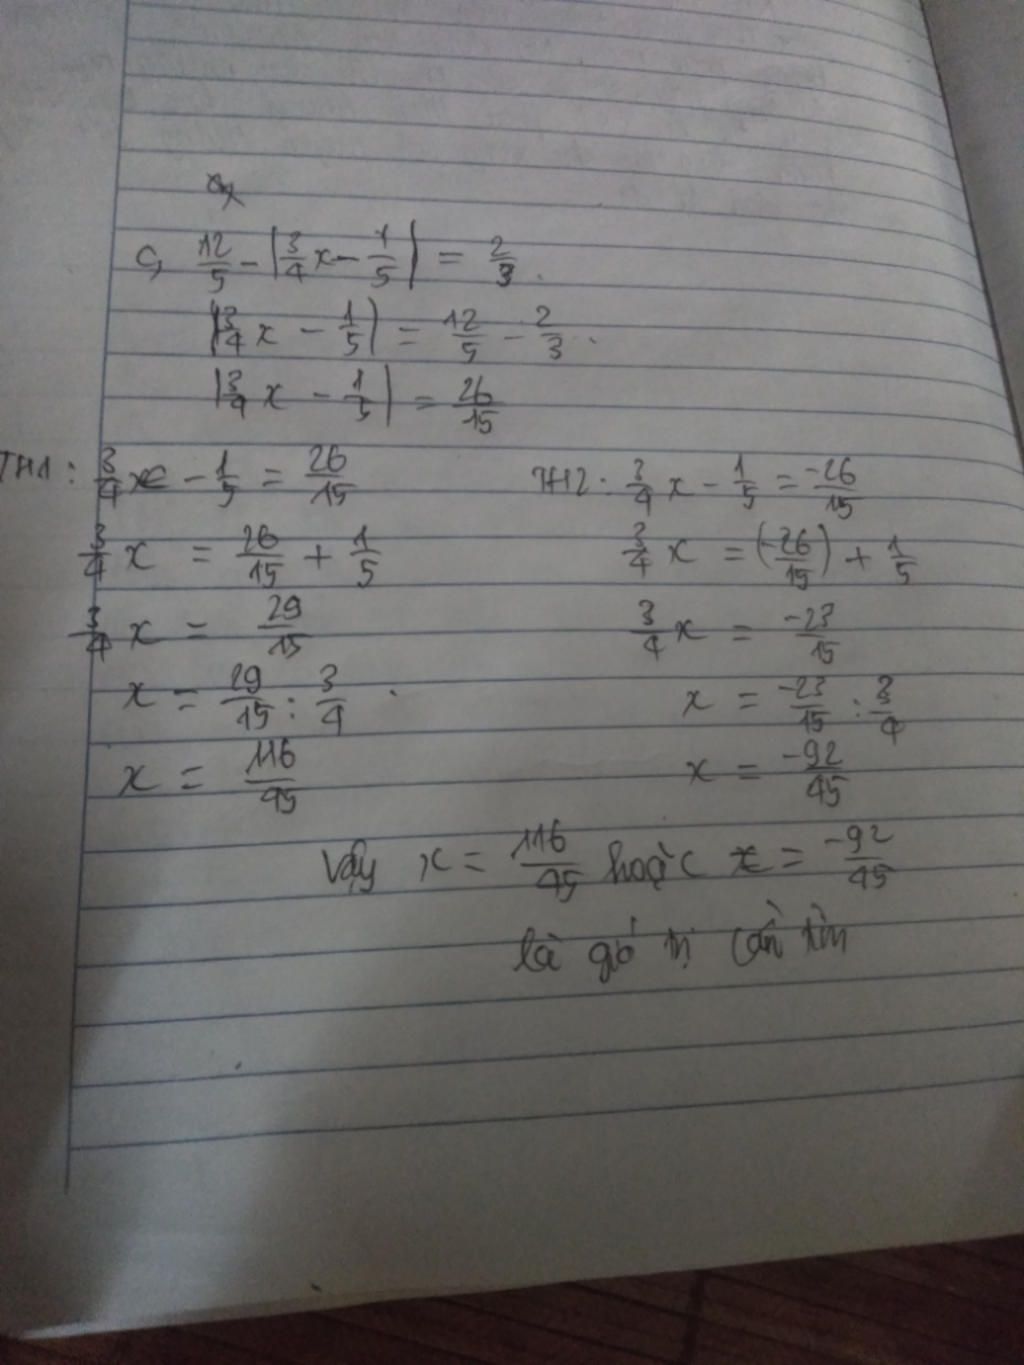 c, 12/5 - |3/4 x - 1/5| = 2/3.
|3/4 x - 1/5| = 12/5 - 2/3.
|3/4 x - 1/5| = 26/15
TH1: 3/4 x - 1/5 = 26/15
3/4 x = 26/15 + 1/5
3/4 x = 29/15
x = 29/15 : 3/4.
x = 116/45
TH2: 3/4 x - 1/5 = -26/15
3/4 x = (-26/15) + 1/5
3/4 x = -23/15
x = -23/15 : 3/4
x = -92/45
Vậy x = 116/45 hoặc x = -92/45
là giá trị cần tìm